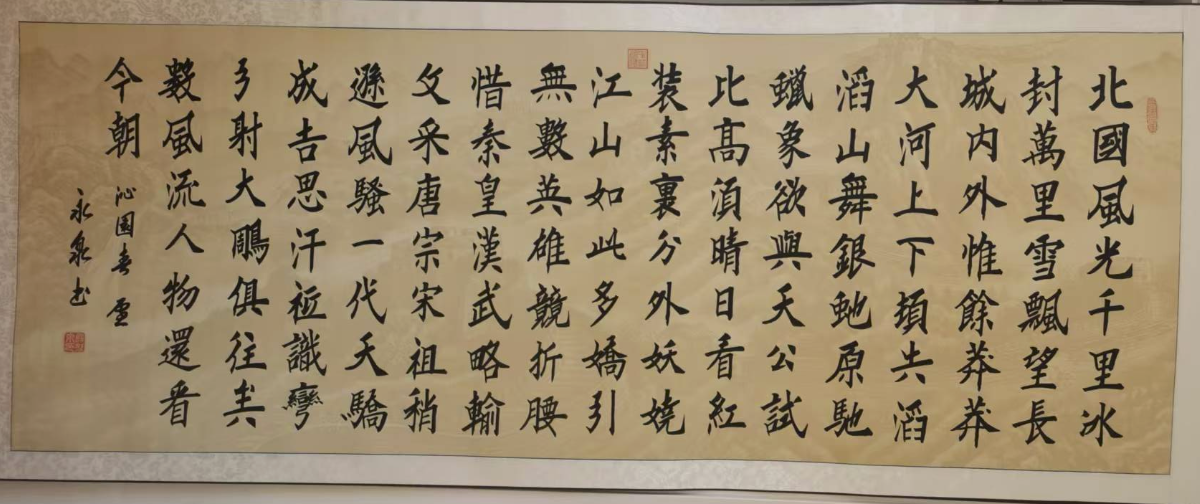 北國風光千里冰
封萬里雪飄望長
城内外惟餘莽莽
大河上下頓失滔
滔山舞銀虵原馳
蠟象欲與天公試
比髙湏晴日看紅
装素裹分外妖嬈
江山如此多嬌引
無數英雄競折腰
惜秦皇漢武略輸
文采唐宗宋祖稍
遜風騷一代天驕
成吉思汗祗識彎
弓射大鵰俱往矣
數風流人物還看
今朝
沁園春 雪
永泉书